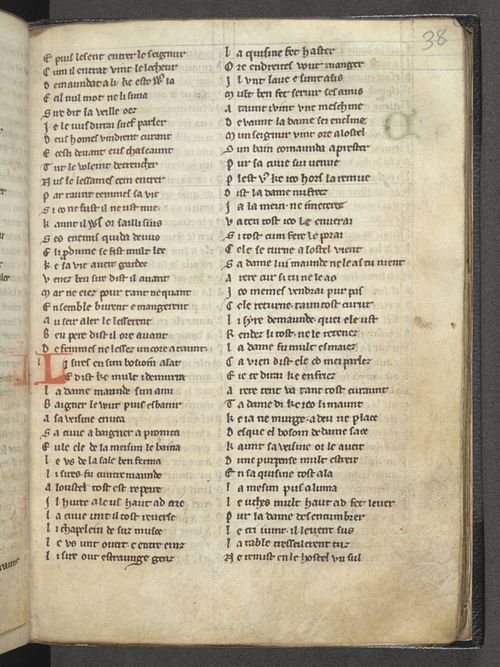 38
E puis lesent entrer le seignur
C um il entrat vint le lecheur
D emaundat a li ke esto
E cil nul mot ne li suna
S ur dit la veille oez
J e le vus durai suef parler
D eus homes vindrent curant
E cesti devant eus chascaunt
T ut le voleint detrencher
N us le lessames cein entrer
P ar taunt remmes sa vie
S i co ne fust il ne ust mie
K aunt il oi sailli sus
S es enemis quida desus
E li produme se fist mult lee
K e sa vie aveit gardee
V enez ben sur dist il avant
M ar ne eiez pour tant ne quant
E nsemble biurent e mangerent
A u seir aler le lesserent
B eu pere dist il ore avant
D e femmes ne lessez uncore ataunt
L i sires en sun bosoin alat
E dist ke mult i demurra
L a dame maunde sun ami
B aigner le vout puis esbanir
A sa veisine enuea
S a cuve a baigner a prumta
E ule ele de la meisun le baina
L e us de la sale ben ferma
L i sires fu cuntremaunde
A l oustel tost est repeire
I l hurte al us haut ad crie
L a cuve unt il tost reverse
L i chapelein de sur muscé
L e us unt overt e entre einz
L i sire out estraunge genz
L a quisine fet haster
O re endreitet vout manger
I l unt lave e sunt asis
M ult ben fet servir ses amis
A taunt vint une meschine
D evaunt la dame sei encline
M un seignur vint ore al ostel
S un bain comaunda aprester
P ur sa cuve sui venue
P lest ke ico hors la remue
D ist la dame nu frez
J a la meun ne sincerez
V a ten tost ico le enverai
S i tost cum fere le porai
C ele se turne a lostel vient
S a dame lui maunde ne le as tu nient
A rere cur si tu ne le as
J co meimes vendrai pur pas
C ele returne taun tost curut
L i syre demaunde quei ele ust
R endez li tost ne le retenez
L a dame fu mult esmaiez
C a vien dist ele od mei parler
E ic te dirai ke enfrez
A rere tent va tant tost curaunt
T a dame di ke ico li maunt
K e ia ne murge a deu ne place
D esque el bosoin de dame sace
K aunt sa veisine ot le aveit
D une purpense mult estreit
E n sa quisine tost ala
L a mesun pus aluma
L e uthes mult haut ad fet lever
P ur la dame desencumbrer
L e cri unt il levent sus
L a table tresseilerent tuz
N e remist en le hostel un sul